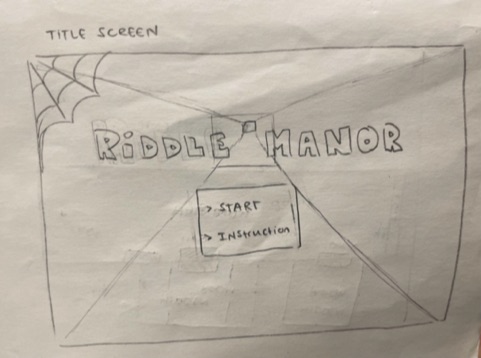 TITLE SCREEN
RiDDLE MANOR
> START
> INStruction